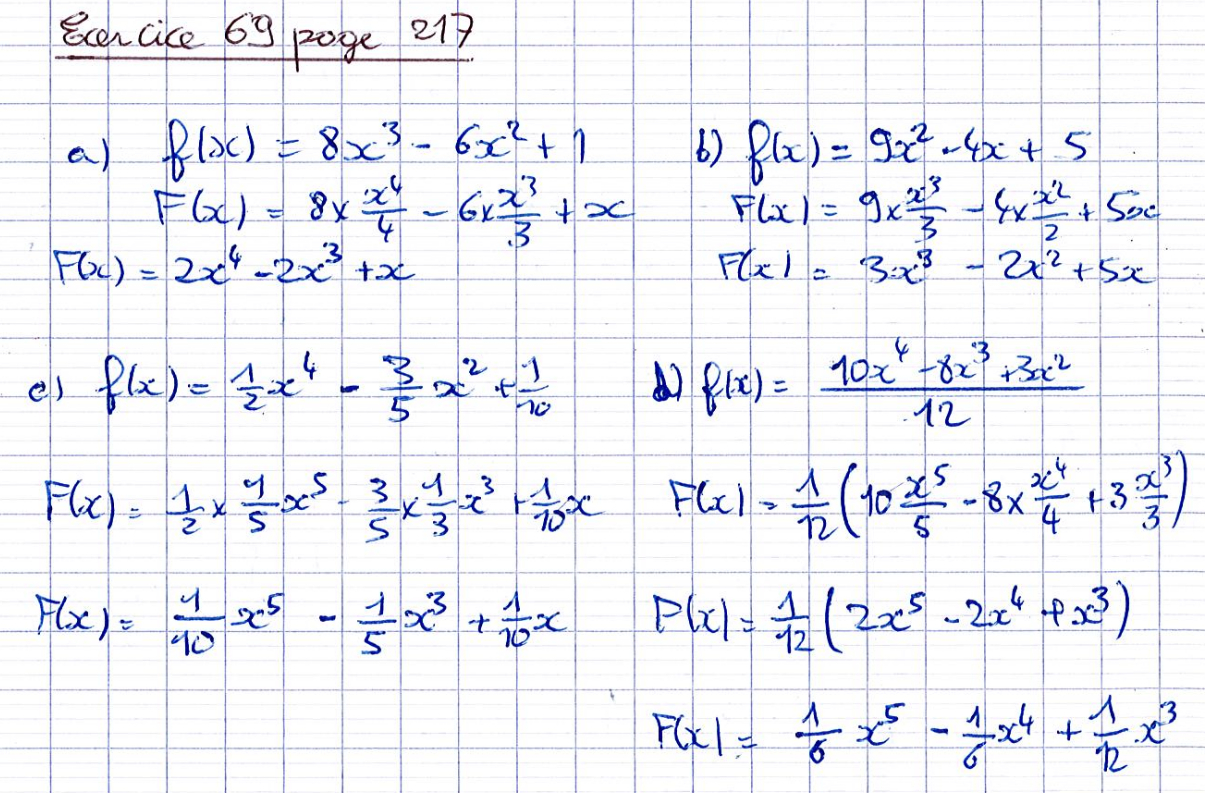 Exercice 69 page 217
a) f(x) = 8x³ - 6x² + 1
F(x) = 8 × x⁴/4 - 6 × x³/3 + x
F(x) = 2x⁴ - 2x³ + x
b) f(x) = 9x² - 4x + 5
F(x) = 9 × x³/3 - 4 × x²/2 + 5x
F(x) = 3x³ - 2x² + 5x
c) f(x) = 1/2 x⁴ - 3/5 x² + 1/10
F(x) = 1/2 × 1/5 x⁵ - 3/5 × 1/3 x³ + 1/10 x
F(x) = 1/10 x⁵ - 1/5 x³ + 1/10 x
d) f(x) = (10x⁴ - 8x³ + 3x²)/12
F(x) = 1/12 (10 x⁵/5 - 8 × x⁴/4 + 3 x³/3)
F(x) = 1/12 (2x⁵ - 2x⁴ + x³)
F(x) = 1/6 x⁵ - 1/6 x⁴ + 1/12 x³